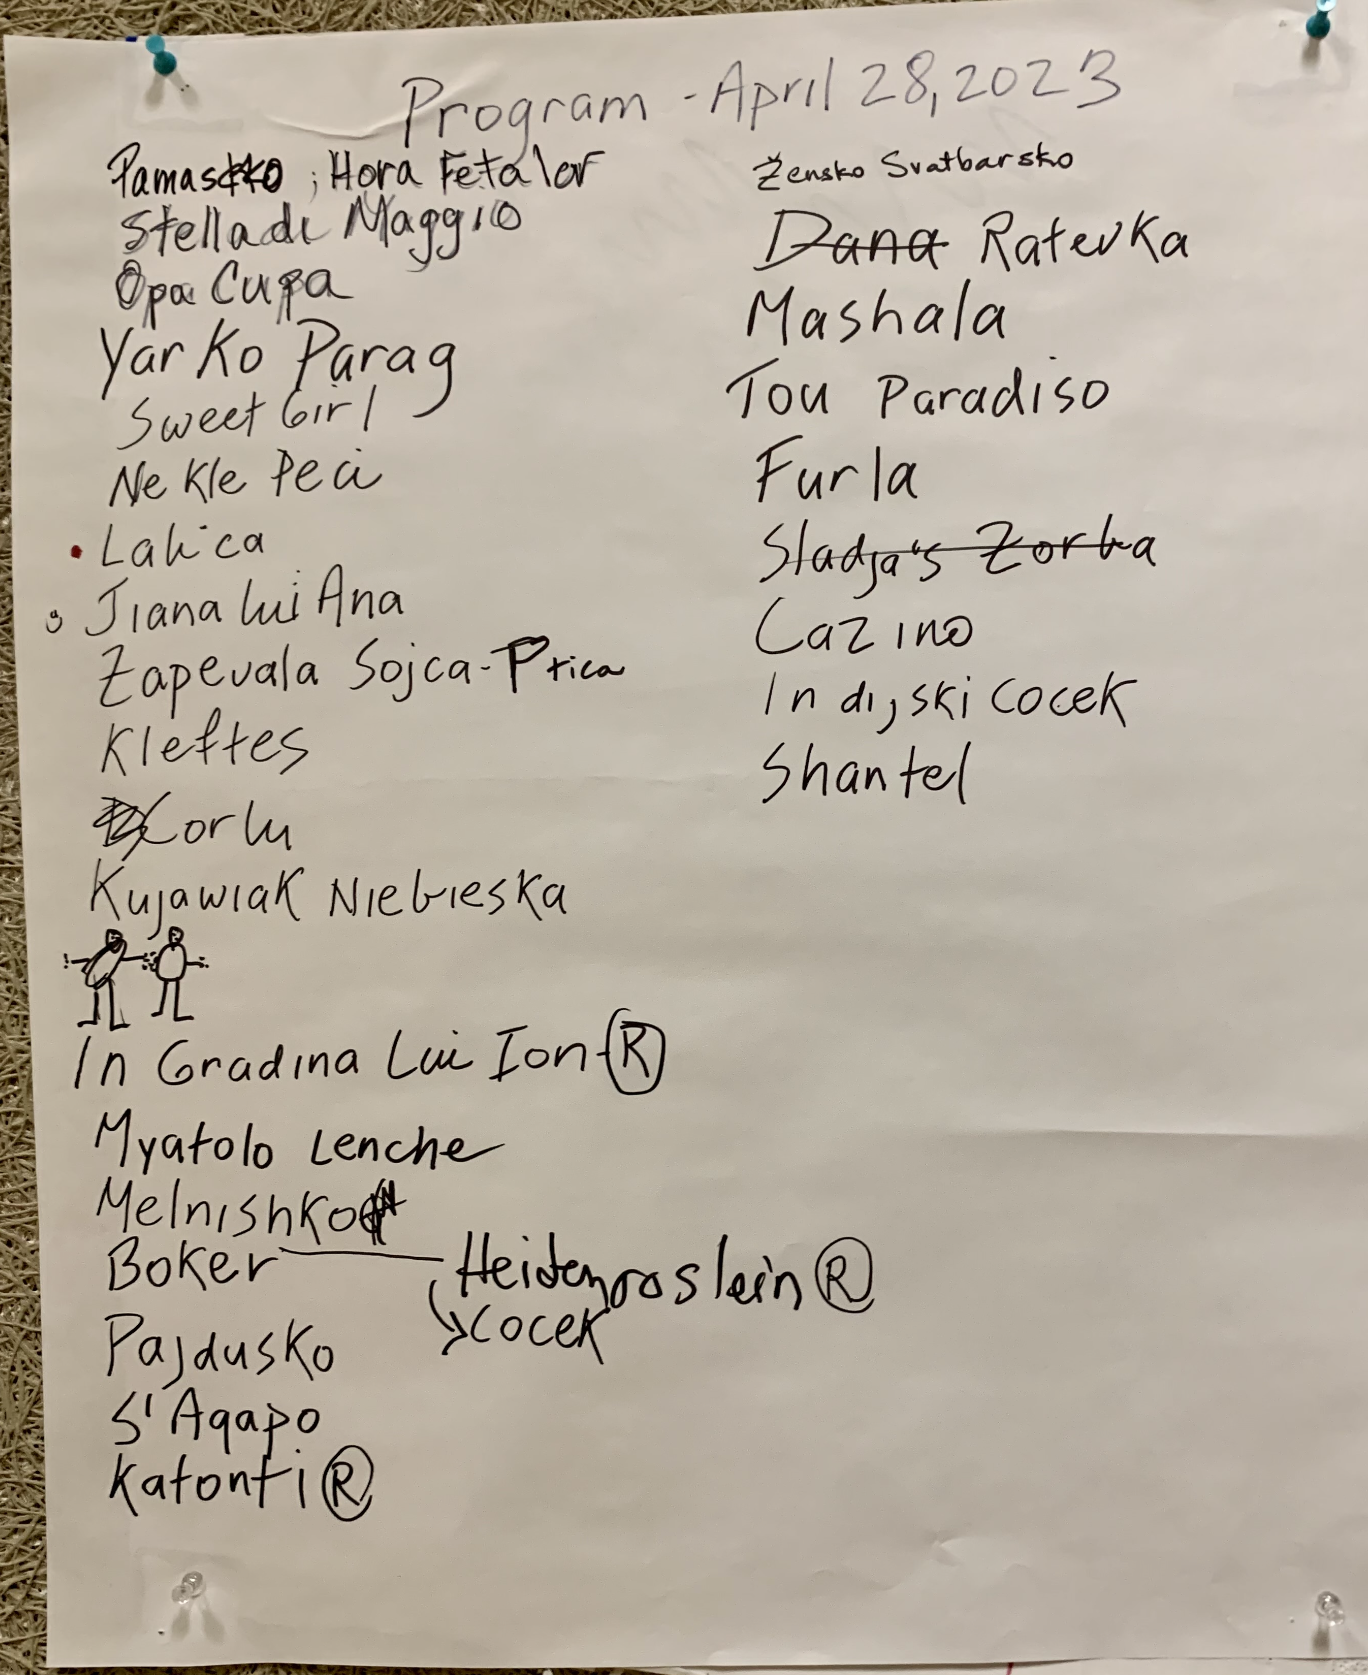 Program - April 28, 2023
Pamasko ; Hora Fetalor
Stella di Maggio
Opa Cupa
Yarko Parag
Sweet Girl
Ne Kle Peci
Lalica
Jiana lui Ana
Zapevala Sojca-Ptica
Kleftes
Corlu
Kujawiak Niebieska
In Gradina Lui Ion-Ⓡ
Myatolo Lenche
Melnishko
Boker Heidenroslein Ⓡ
Cocek
Pajdusko
S'Agapo
Katonti Ⓡ
Žensko Svatbarsko
Dana Ratevka
Mashala
Tou Paradiso
Furla
Sladja's Zorba
Cazino
Indijski Cocek
Shantel